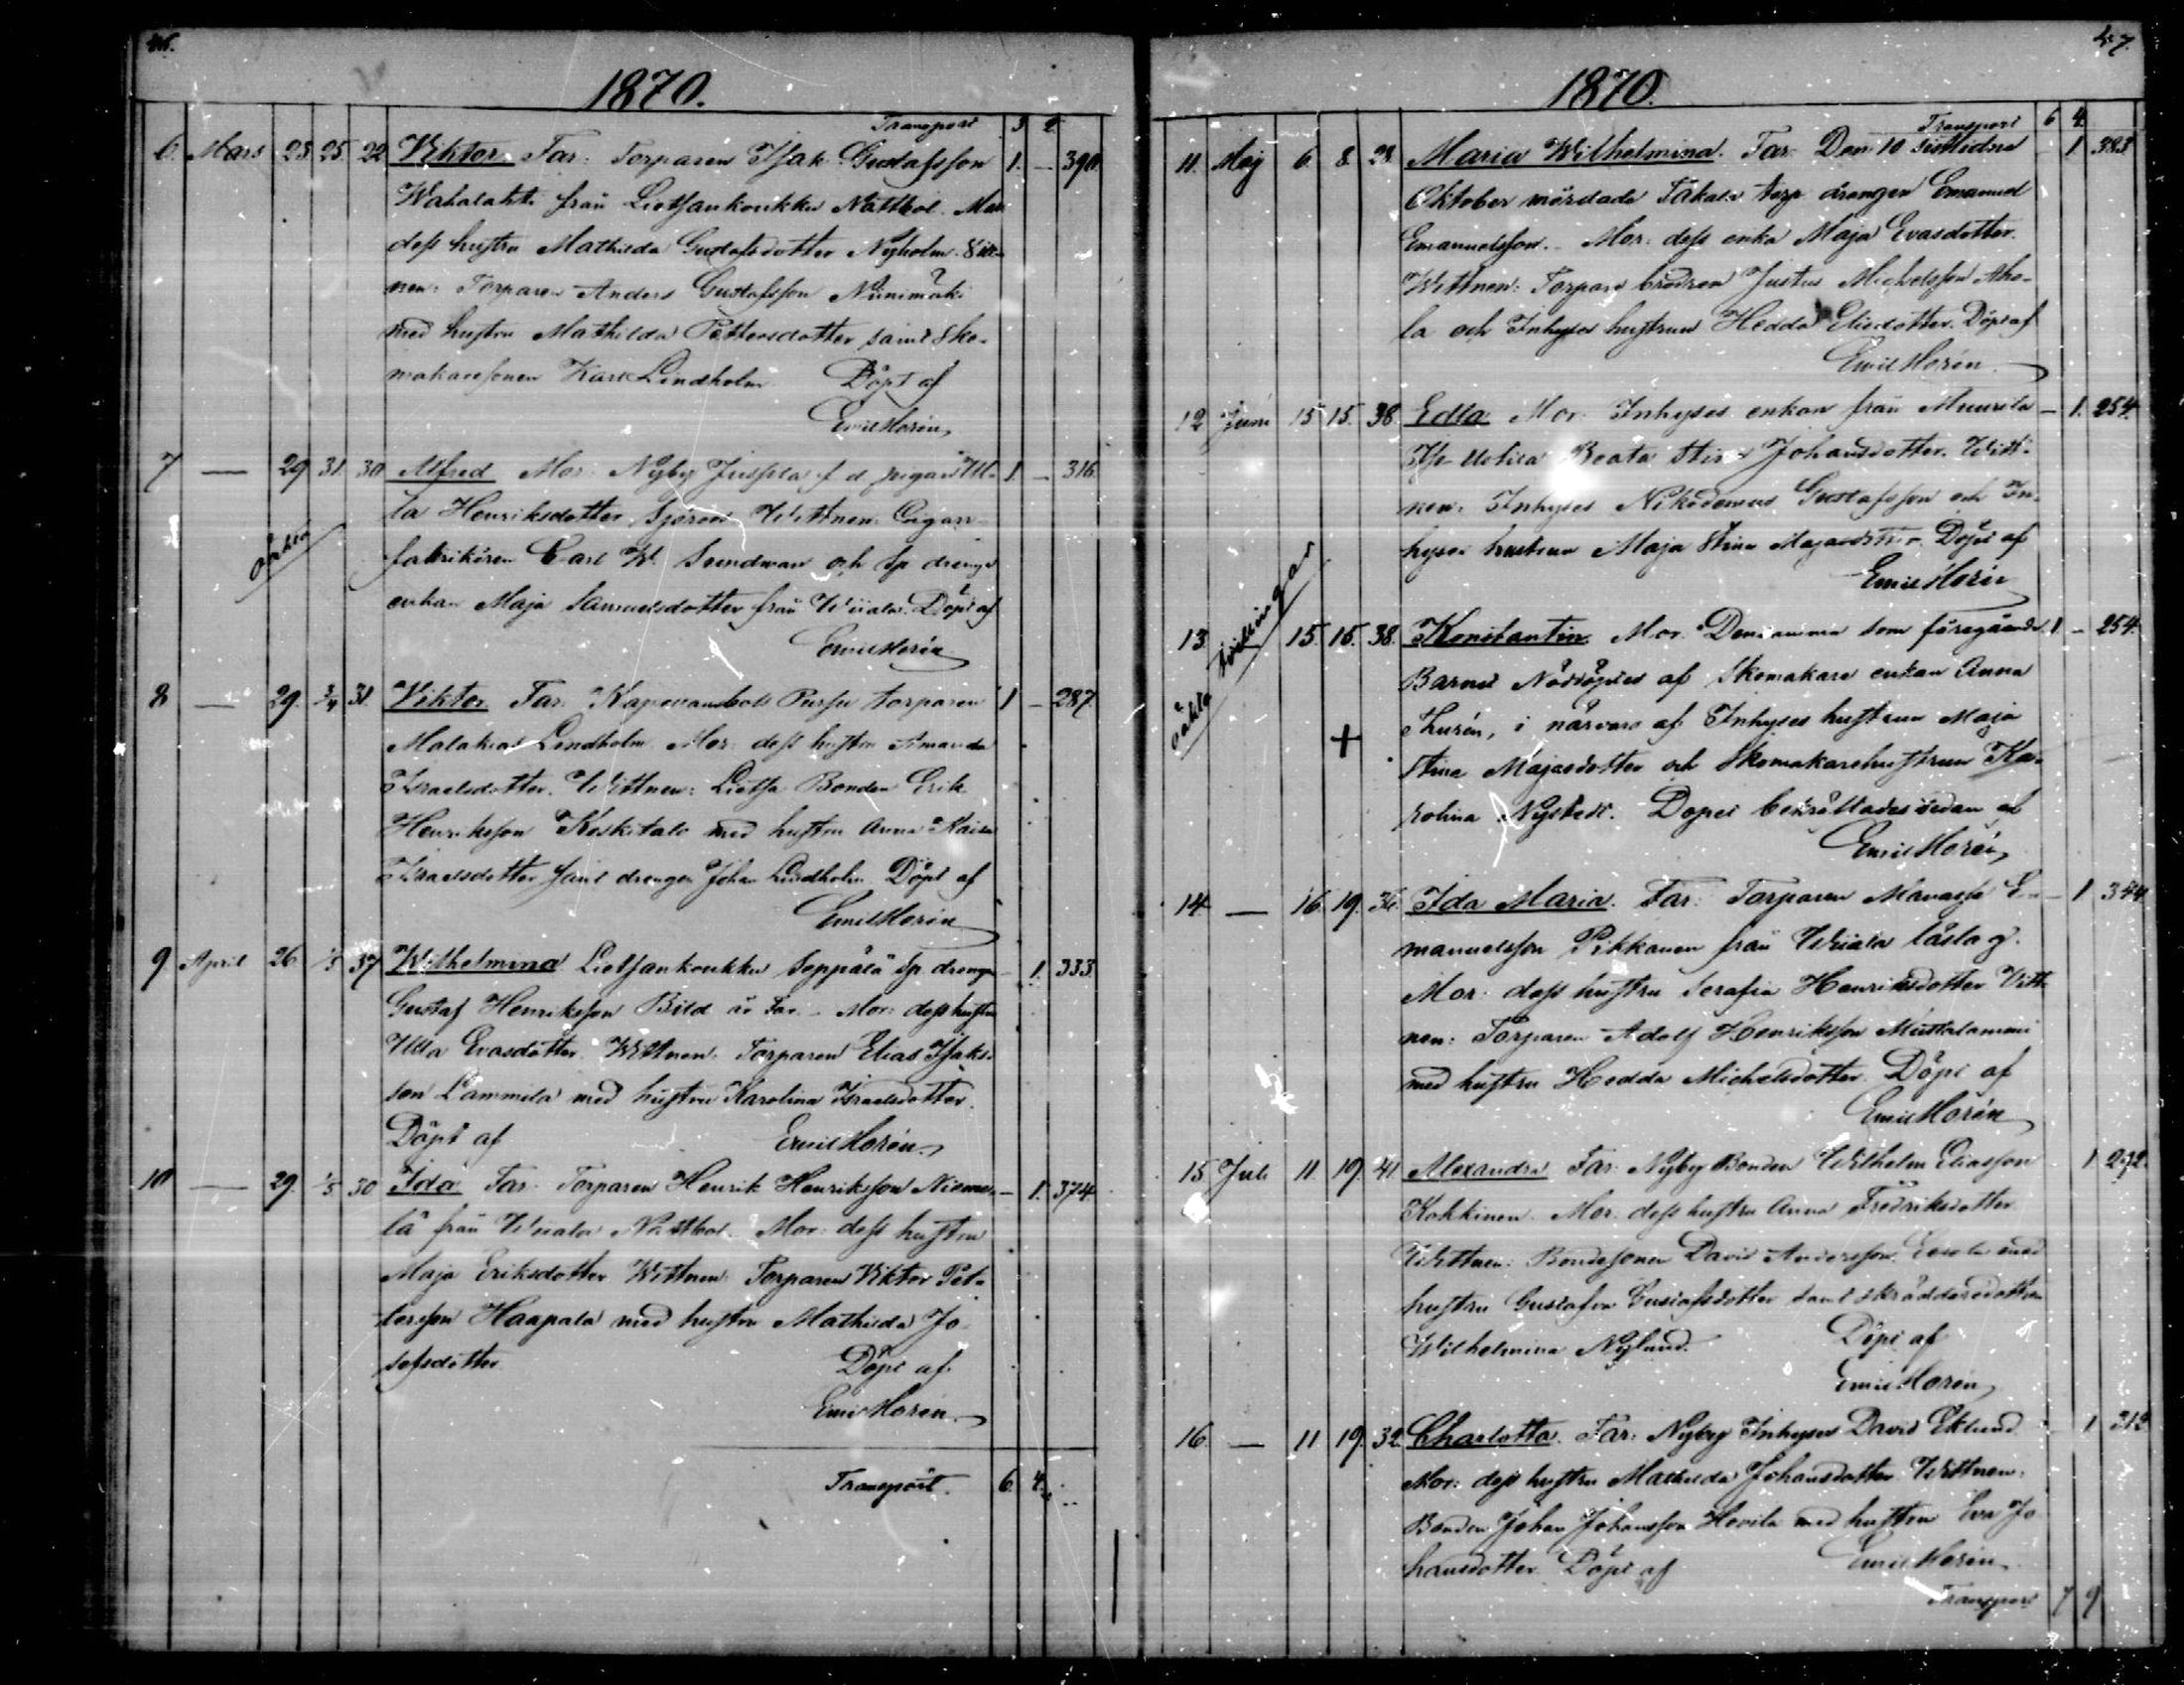 46.
1870.
Transport 3 2
6. Mars 23. 25. 22 Viktor. Far: Torparen Isak Gustafsson 1. - 390.
Wahalahti från Liettankoukku Nättbol. Mor
dess hustru Mathilda Gustafsdotter Nyholm. Vitt-
nen: Torparen Anders Gustafsson Niinimäki
med hustru Mathilda Pettersdotter samt Sko-
makaresonen Karl Lindholm. Döpt af
Emil Horén
7 — 29 31. 30 Alfred Mor: Nyby Jussila f. d. pigan Ul- 1. - 316.
oäkta
la Henriksdotter Sjöroos Wittnen: Cigarr-
fabrikören Carl W. Sundman och Sp. drengs
enkan Maja Samuelsdotter från Wiiala. Döpt af
Emil Horén
8 — 29. 3/4 31. Viktor. Far: torparen 1 - 287.
Malakias Lindholm. Mor: dess hustru Amanda
Israelsdotter. Wittnen: Lietsa Bonden Erik
Henriksson Koskitalo med hustru Anna Kaisa
Israelsdotter samt drengen Johan Lindholm. Döpt af
Emil Horén
9 April 26. 1/5 37 Wilhelmina Liettankoukku Seppälä Sp. drengen - 1. 333.
Gustaf Henriksson Bild är Far. - Mor: dess hustru
Ulla Evasdotter. Wittnen: Torparen Elias Isaks-
son Lammila med hustru Karolina Israelsdotter.
Döpt af Emil Horén
10 — 29. 1/5 30 Ida Far: Torparen Henrik Henriksson Nieme- - 1. 374.
lä från Wiiala Nättbol. Mor: dess hustru
Maja Eriksdotter. Wittnen: Torparen Viktor Pet-
tersson Haapala med hustru Mathilda Jo-
sefsdotter. Döpt af
Emil Horén
Transport. 6. 4.
47.
1870.
Transport 6 4.
11. Maj 6. 8. 23. Maria Wilhelmina. Far: Den 10 sistlidne 1 383.
Oktober mördade torp drengen Emanuel
Emanuelsson. - Mor: dess enka Maja Evasdotter.
Wittnen: Torpare brodren Justus Michelsson Aho-
la och Inhyses hustrun Hedda Eliedotter. Döpt af
Emil Horén
12 Juni 15 15. 38. Edla Mor: Inhyses enkan från - 1. 254.
Beata Stina Johansdotter. Witt-
nen: Inhyses Nikodemus Gustafsson och In-
hyses hustrun Maja Stina Majasdotter. Döpt af
Emil Horén
13. oäkta tvillingar 15. 15. 38. Konstantin. Mor: Densamma som föregående 1 - 254.
Barnet Nöddöptes af Skomakare enkan Anna
Thurén, i närvaro af Inhyses hustrun Maja
+ Stina Majasdotter och Skomakarehustrun Ka-
rolina Nystedt. Dopet bekräftades sedan af
Emil Horén
14. — 16. 19. 36. Ida Maria. Far: Torparen Manasse E- - 1 344
manuelsson Pikkanen från Wiiala låslag.
Mor: dess hustru Serafia Henriksdotter. Vitt-
nen: Torparen Adolf Henriksson Mustalammi
med hustru Hedda Michelsdotter. Döpt af
Emil Horén
15 Juli 11 19. 41 Alexandra Far: Nyby Bonden Wilhelm Eliasson 1 292.
Kokkinen. Mor: dess hustru Anna Fredriksdotter.
Wittnen: Bondesonen David Andersson Eerola med
hustru Gustafva Gustafsdotter samt skräddaredottern
Wilhelmina Nylund. Döpt af
Emil Horén
16. — 11 19. 32. Charlotta. Far: Nyby Inhyses David Eklund 1 312
Mor: dess hustru Mathilda Johansdotter. Wittnen:
Bonden Johan Johansson Hovila med hustru Eva Jo-
hansdotter. Döpt af Emil Horén
Transport 7 9